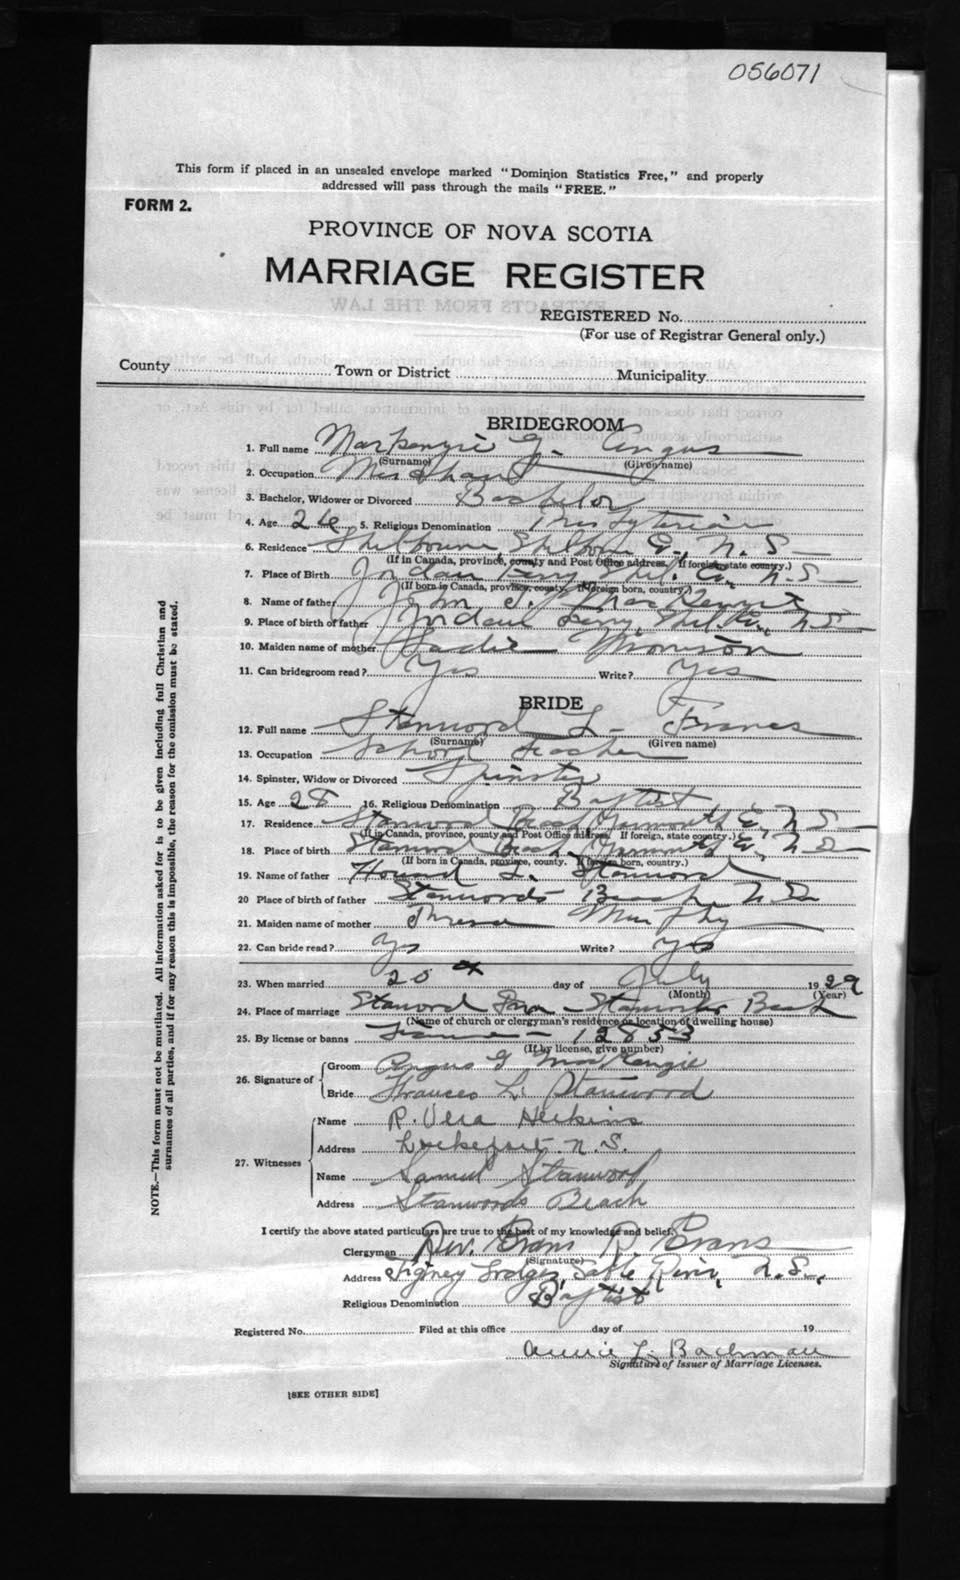 056071
This form if placed in an unsealed envelope marked "Dominion Statistics Free," and properly
addressed will pass through the mails "FREE."
FORM 2.
PROVINCE OF NOVA SCOTIA
MARRIAGE REGISTER
REGISTERED No.
(For use of Registrar General only.)
County Town or District Municipality
BRIDEGROOM
1. Full name MacKenzie G. Angus
(Surname) (Given name)
2. Occupation Merchant
3. Bachelor, Widower or Divorced Bachelor
4. Age 26 5. Religious Denomination Presbyterian
6. Residence Shelburne, Shelbourne Co., N.S.
(If in Canada, province, county and Post Office address. If foreign, state country.)
7. Place of Birth Jordan Ferry, Shel. Co., N.S.
(If born in Canada, province, county. If foreign born, country.)
8. Name of father John J. MacKenzie
9. Place of birth of father Jordan Ferry, Shel. Co., N.S.
10. Maiden name of mother Sadie Morrison
11. Can bridegroom read? Yes Write? Yes
BRIDE
12. Full name Stanwood L. Frances
(Surname) (Given name)
13. Occupation School Teacher
14. Spinster, Widow or Divorced Spinster
15. Age 28 16. Religious Denomination Baptist
17. Residence Stanwood Beach, Yarmouth Co., N.S.
(If in Canada, province, county and Post Office address. If foreign, state country.)
18. Place of birth Stanwood Beach, Yarmouth Co., N.S.
(If born in Canada, province, county. If foreign born, country.)
19. Name of father Howard L. Stanwood
20 Place of birth of father Stanwoods Beach N.S.
21. Maiden name of mother Theresa Murphy
22. Can bride read? Yes Write? Yes
23. When married 20th day of July 1929
(Month) (Year)
24. Place of marriage Stanwood Stanwoods Beach
(Name of church or clergyman's residence or location of dwelling house)
25. By license or banns License - 12853
(If by license, give number)
26. Signature of Groom Angus G MacKenzie
Bride Frances L. Stanwood
27. Witnesses Name R. Vera Herkins
Address Lockeport. N.S.
Name Samuel Stanwood
Address Stanwoods Beach
I certify the above stated particulars are true to the best of my knowledge and belief.
Clergyman Rev. Evans R Evans
(Signature)
Address Lodges, Sable River, N.S.,
Religious Denomination Baptist
Registered No. Filed at this office day of 19
Annie L. Bachman
Signature of Issuer of Marriage Licenses.
[SEE OTHER SIDE]
NOTE.—This form must not be mutilated. All information asked for is to be given including full Christian and
surnames of all parties, and if for any reason this is impossible, the reason for the omission must be stated.